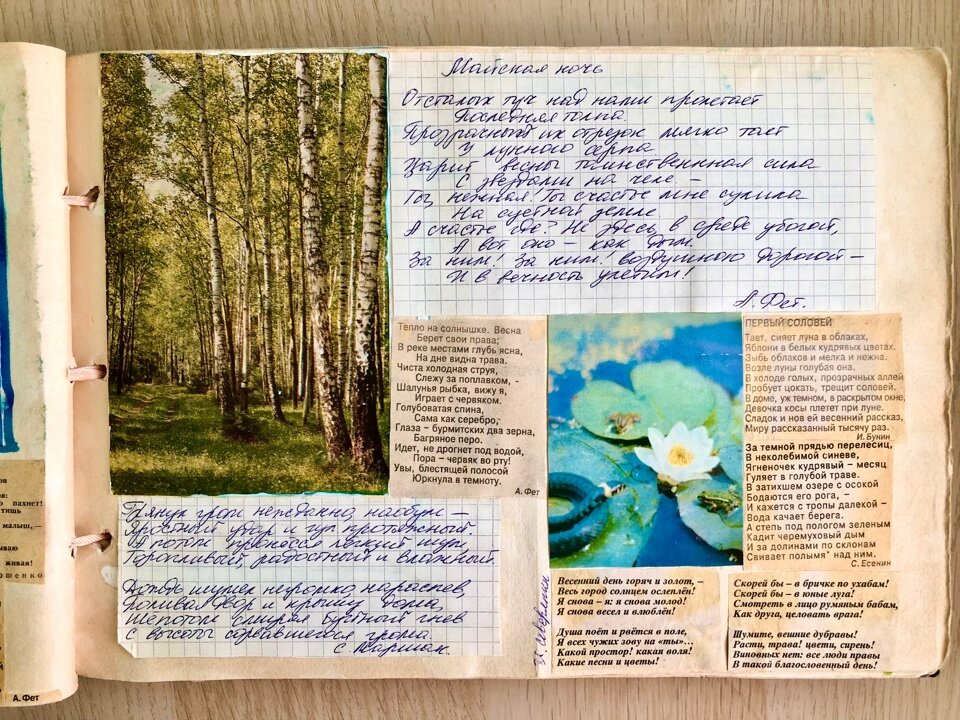 Майская ночь
Отсталых туч над нами пролетает
Последняя толпа.
Прозрачный их отрезок мягко тает
У лунного серпа
Царит весны таинственнная сила
С звездами на челе –
Ты, нежная! Ты счастье мне сулила
На суетной земле.
А счастье где? Не здесь, в среде убогой,
А вот оно – как дым.
За ним! За ним! воздушною дорогой –
И в вечность улетим!
А. Фет.
Тепло на солнышке. Весна
Берет свои права;
В реке местами глубь ясна,
На дне видна трава.
Чиста холодная струя,
Слежу за поплавком, -
Шалунья рыбка, вижу я,
Играет с червяком.
Голубоватая спина,
Сама как серебро,
Глаза – бурмитских два зерна,
Багряное перо.
Идет, не дрогнет под водой,
Пора – червяк во рту!
Увы, блестящей полосой
Юркнула в темноту.
А. Фет
ПЕРВЫЙ СОЛОВЕЙ
Тает, сияет луна в облаках,
Яблони в белых кудрявых цветах.
Зыбь облаков и мелка и нежна.
Возле луны голубая она.
В холоде голых, прозрачных аллей
Пробует цокать, трещит соловей.
В доме, уж темном, в раскрытом окне,
Девочка косы плетет при луне.
Сладок и нов ей весенний рассказ,
Миру рассказанный тысячу раз.
И. Бунин
За темной прядью перелесиц,
В неколебимой синеве,
Ягненочек кудрявый – месяц
Гуляет в голубой траве.
В затихшем озере с осокой
Бодаются его рога, –
И кажется с тропы далекой –
Вода качает берега.
А степь под пологом зеленым
Кадит черемуховый дым
И за долинами по склонам
Свивает полымя над ним.
С. Есенин
Грянул гром нежданно, наобум –
Яростный удар и гул протяжный.
А потом пронесся легкий шум,
Торопливый, радостный и влажный.
Дождь шумел негромко, нараспев,
Поливая двор и крышу дома,
Шепотом смиряя бурный гнев
С высоты сорвавшегося грома.
С. Маршак
И. Северянин
Весенний день горяч и золот, –
Весь город солнцем ослеплён!
Я снова – я: я снова молод!
Я снова весел и влюблён!
Душа поёт и рвётся в поле,
Я всех чужих зову на «ты»...
Какой простор! какая воля!
Какие песни и цветы!
Скорей бы – в бричке по ухабам!
Скорей бы – в юные луга!
Смотреть в лицо румяным бабам,
Как друга, целовать врага!
Шумите, вешние дубравы!
Расти, трава! цвети, сирень!
Виновных нет: все люди правы
В такой благословенный день!
пахнет!
тишь
малыш, –
живая!
А. Фет